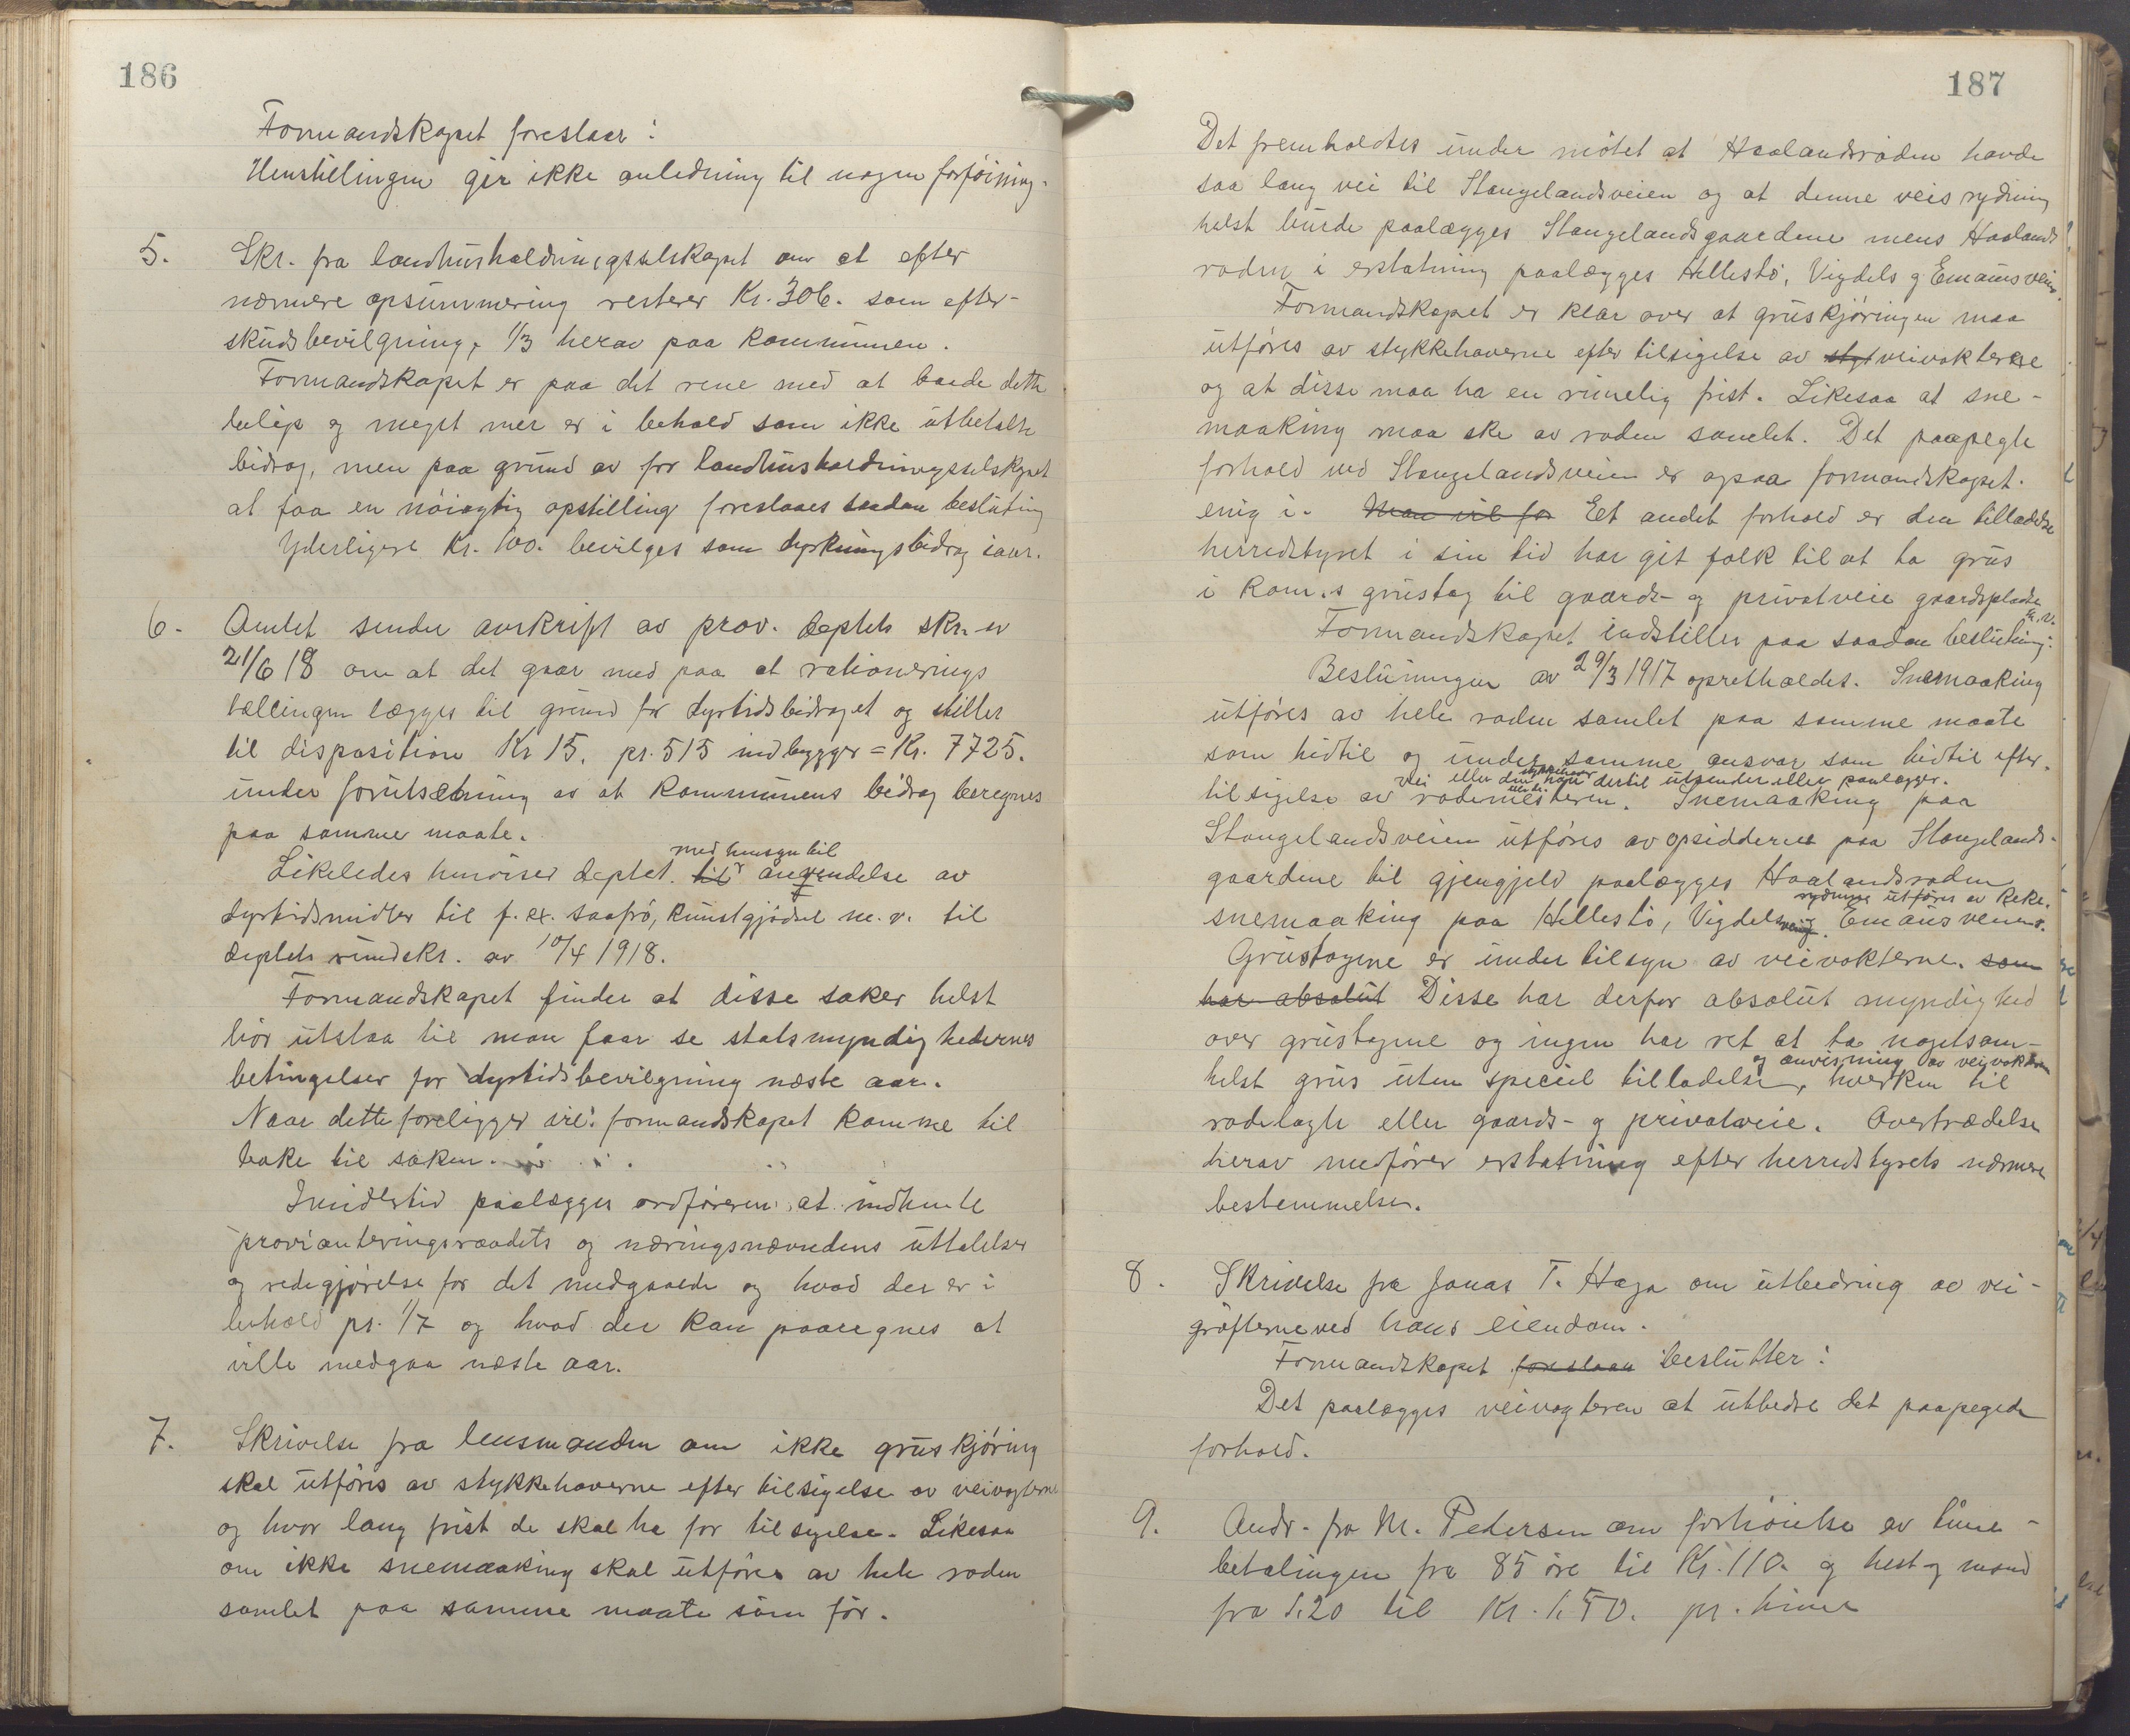 186
Formandskapet foreslaar:
Henstillingen gir ikke anledning til nogen forföining.
5. Skr. fra landhusholdningsselskapet om at efter
nærmere opsummering resterer Kr. 306. som efter-
skudsbevilgning, 1/3 herav paa kommunen.
Formandskapet er paa det rene med at baade dette
belöp og meget mer er i behold som ikke utbetalte
bidrag, men paa grund av for landhusholdningsselskapet
at faa en nöiagtig opstilling foreslaaes saadan beslutning
Yderligere Kr. 100. bevilges som dyrkningsbidrag iaar.
6. Amtet sender avskrift av prov. deptets skr. av
21/6 18 om at det gaar med paa at rationerings
tællingen lægges til grund for dyrtidsbidraget og stiller
til disposition Kr 15. pr. 515 indbygger = Kr. 7725.
under forutsætning av at kommunens bidrag beregnes
paa samme maate.
Likeledes henviser deptet. til med hensyn til anvendelse av
dyrtidsmidler til f. ex. saafrö, kunstgjödsel m. v. til
deptets rundskr. av 10/4 1918.
Formandskapet finder at disse saker helst
bör utstaa til man faar se statsmyndighedernes
betingelser for dyrtidsbevilgning næste aar.
Naar dette foreligger vil formandskapet komme til
bake til saken.
Imidlertid paalægges ordföreren at indhente
provianteringsraadets og næringsnævndens uttalelser
og redegjörelse for det medgaaede og hvad der er i
behold pr. 1/7 og hvad der kan paaregnes at
ville medgaa næste aar.
7. Skrivelse fra lensmanden om ikke gruskjöring
skal utföres av stykkehaverne efter tilsigelse av veivogterne
og hvor lang frist de skal ha for tilsigelse. Likesaa
om ikke snemaaking skal utföres av hele roden
samlet paa samme maate som för.
187
Det fremholdtes under mötet at Haalandsroden havde
saa lang vei til Stangelandsveien og at denne veis rydning
helst burde paalægges Stangelandsgaardene mens Haalands
roden i erstatning paalægges Hellestö, Vigdels og Emausveien.
Formandskapet er klar over at gruskjöringen maa
utföres av stykkehaverne efter tilsigelse av styt veivokterne
og at disse maa ha en rimelig frist. Likesaa at sne-
maaking maa ske av roden samlet. Det paapegte
forhold ved Stangelandsveien er ogsaa formandskapet
enig i. Man vil for Eet andet forhold er den tilladelse
herredstyret i sin tid har git folk til at ta grus
i kom.s grustag til gaards- og privatveie gaardspladse
m. v.
Formandskapet indstiller paa saadan beslutning:
Beslutningen av 29/3 1917 opretholdes. Snemaaking
utföres av hele roden samlet paa samme maate
som hidtil og under samme ansvar som hidtil efter
vei eller den han dertil utsender eller paalægger.
tilsigelse av rodemesteren. Snemaaking paa
Stangelandsveien utföres av opsidderne paa Stangelands-
gaardene til gjengjeld paalægges Haalandsroden
rydning utföres av Reke.
snemaaking paa Hellestö, Vigdels Emausveiens.
Grustagene er under tilsyn av veivokterne. som
har absolut Disse har derfor absolut myndighed
over grustagene og ingen har ret at ta nogetsom-
og anvisning av veivokteren
helst grus uten speciel tilladelse, hverken til
rodelagte eller gaards- og privatveie. Overtrædelse
herav medförer erstatning efter herredstyrets nærmere
bestemmelse.
8. Skrivelse fra Jonas T. Haga om utbedring av vei-
gröfterne ved hans eiendom.
Formandskapet foreslaar beslutter:
Det paalægges veivogteren at utbedre det paapegede
forhold.
9. Andr. fra M. Petersen om forhöielse av time-
betalingen fra 85 öre til Kr. 1 10. og hest og mand
fra 1.20 til Kr. 1.50. pr. time